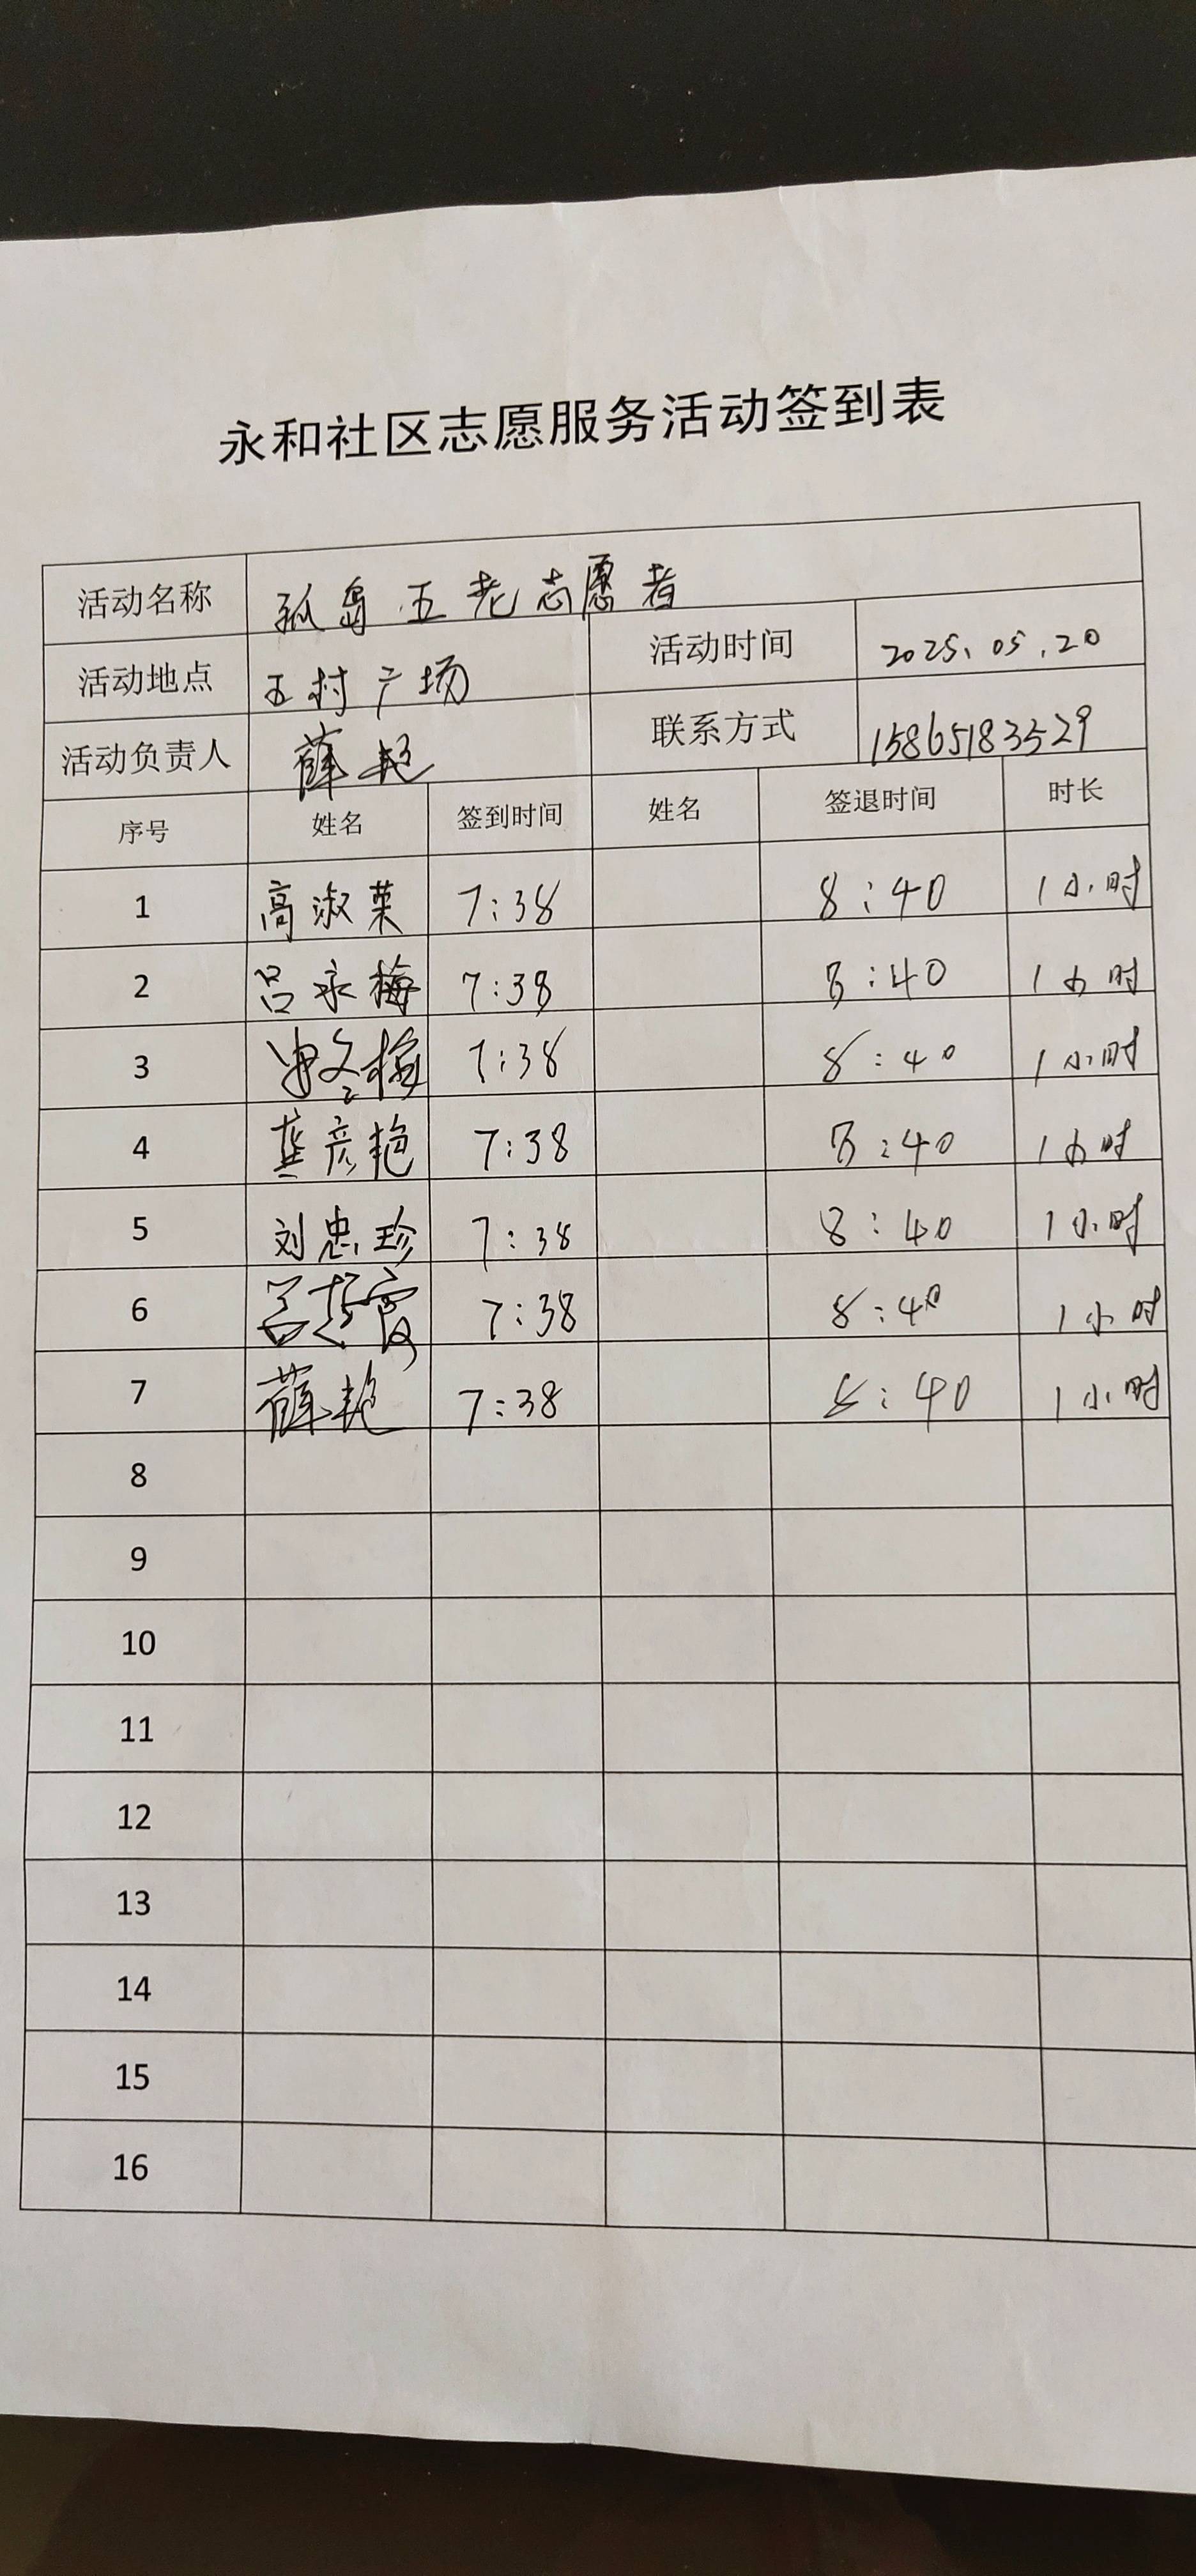 永和社区志愿服务活动签到表
活动名称 孤岛五老志愿者
活动地点 五村广场 活动时间 2025.05.20
活动负责人 薛艳 联系方式 15865183529
序号 姓名 签到时间 姓名 签退时间 时长
1 高淑英 7:38 8:40 1小时
2 吕永梅 7:38 8:40 1小时
3 7:38 8:40 1小时
4 龚彦艳 7:38 8:40 1小时
5 刘忠珍 7:38 8:40 1小时
6 7:38 8:40 1小时
7 薛艳 7:38 8:40 1小时
8
9
10
11
12
13
14
15
16